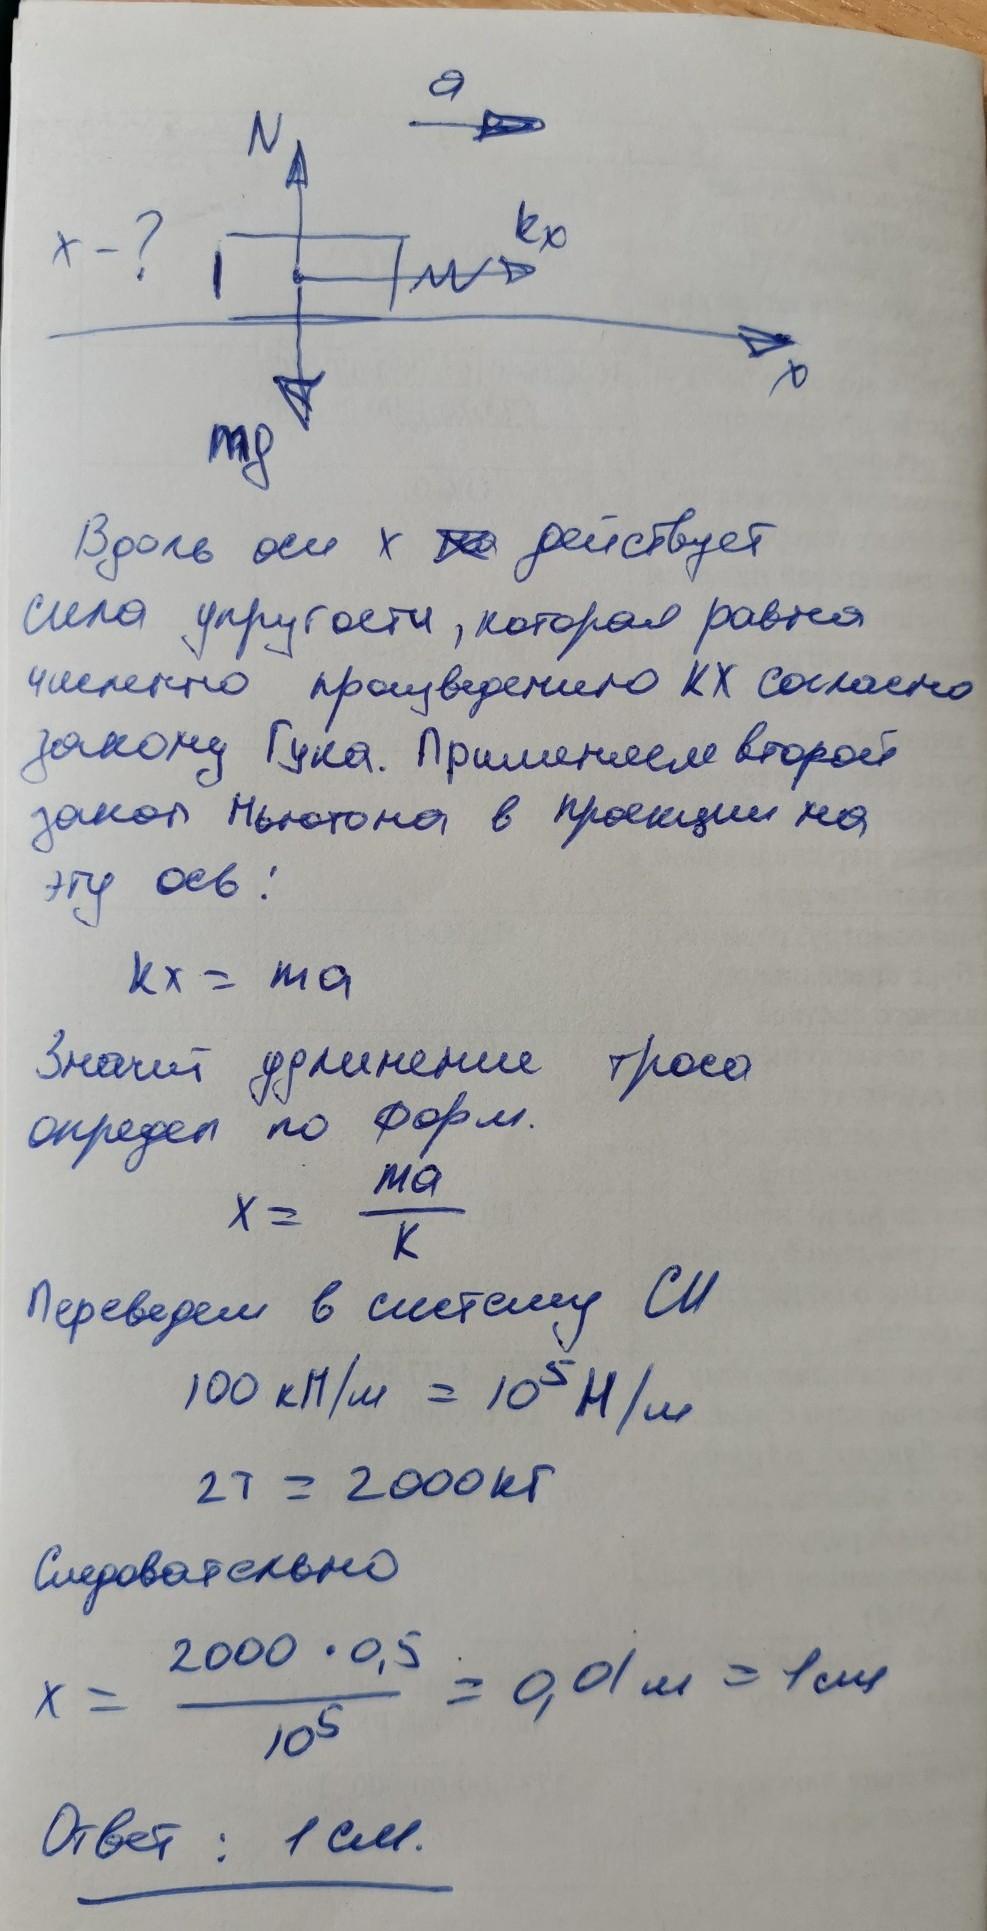 a
N
x - ?
kx
x
mg
Вдоль оси x действует
сила упругости, которая равна
численно произведению KX согласно
закону Гука. Применяем второй
закон Ньютона в проекции на
эту ось:
kx = ma
Значит удлинение троса
определ по форм.
x = ma/k
Переведем в систему СИ
100 кН/м = 10⁵ Н/м
2т = 2000кг
Следовательно
x = 2000 · 0,5 / 10⁵ = 0,01 м = 1 см
Ответ: 1 см.